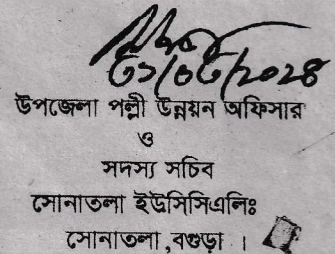 উপজেলা পল্লী উন্নয়ন অফিসার
ও
সদস্য সচিব
সোনাতলা ইউসিসিএলিঃ
সোনাতলা ,বগুড়া ।